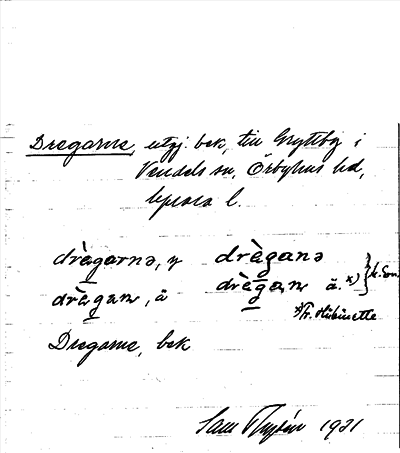 Dragarne, utgj. bek. till Gryttby i
Vendels sn, Örbyhus hd,
Upsala l.
drȧ̀garnə, y drȧ̀ganə
dràgan, ä dràgan ä. x) } k. Son.
x) Fr. Hübinette
Dragarne, bek
Sam 1921